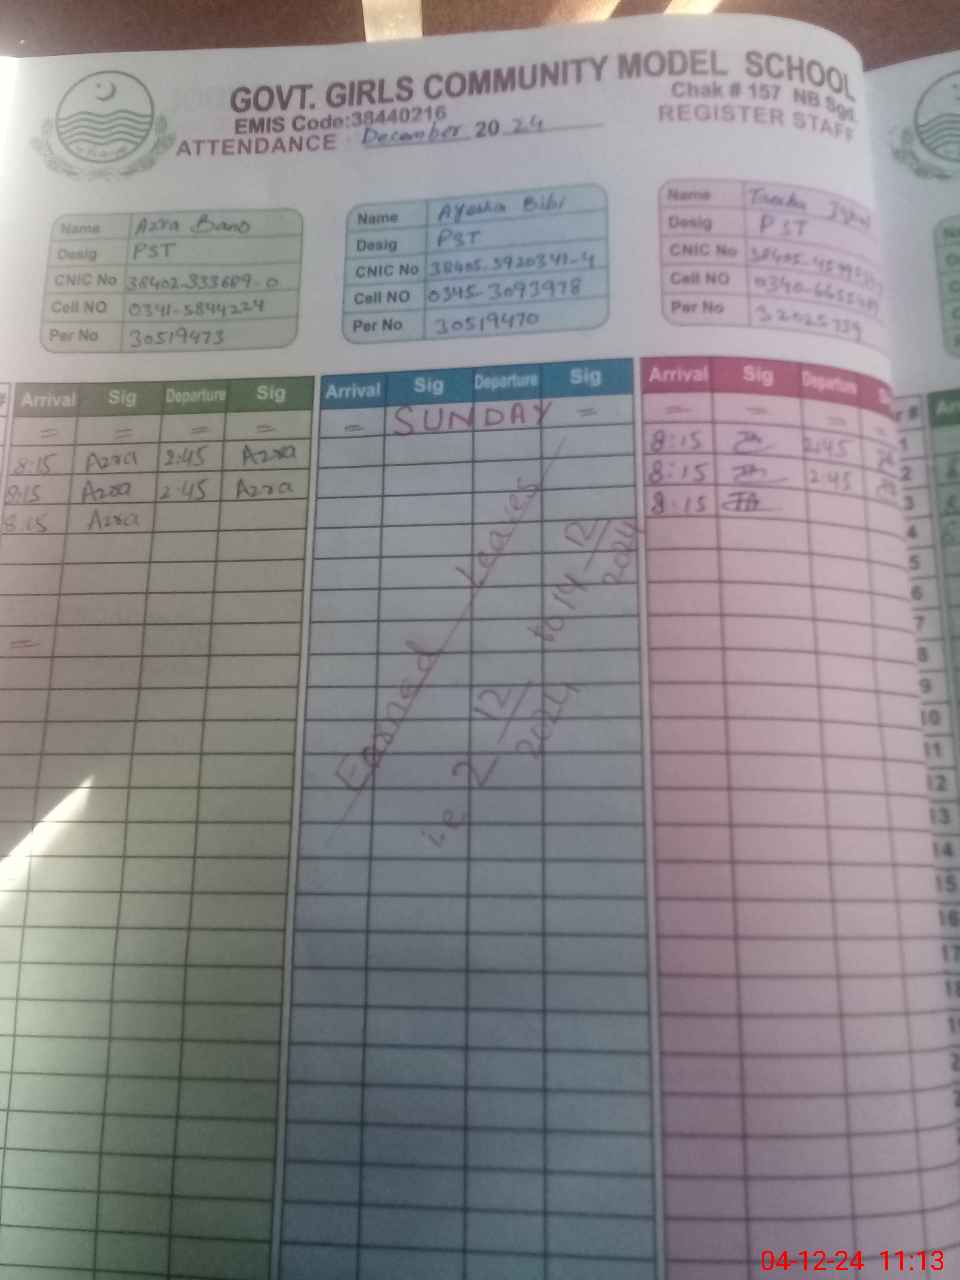 GOVT. GIRLS COMMUNITY MODEL SCHOOL
EMIS Code:38440216
Chak # 157 NB Sgd.
ATTENDANCE December 2024
REGISTER STAFF
Name Azra Bano
Desig PST
CNIC No 38402-333689-0
Cell NO 0341-5844224
Per No 30519473
Name Ayesha Bibi
Desig PST
CNIC No 38405-5920341-4
Cell NO 0345-3093978
Per No 30519470
Name
Desig PST
CNIC No
Cell NO
Per No
Arrival Sig Departure Sig
= = = =
8:15 Azra 2:45 Azra
8:15 Azra 2:45 Azra
8:15 Azra
=
Arrival Sig Departure Sig
= SUNDAY =
Earned Leaves
i.e 2 12/2024 to 14 12/2024
Arrival Sig Departure
= = = =
8:15 2:45
8:15 2:45
8:15
1
2
3
4
5
6
7
8
9
10
11
12
13
14
15
16
17
04-12-24 11:13